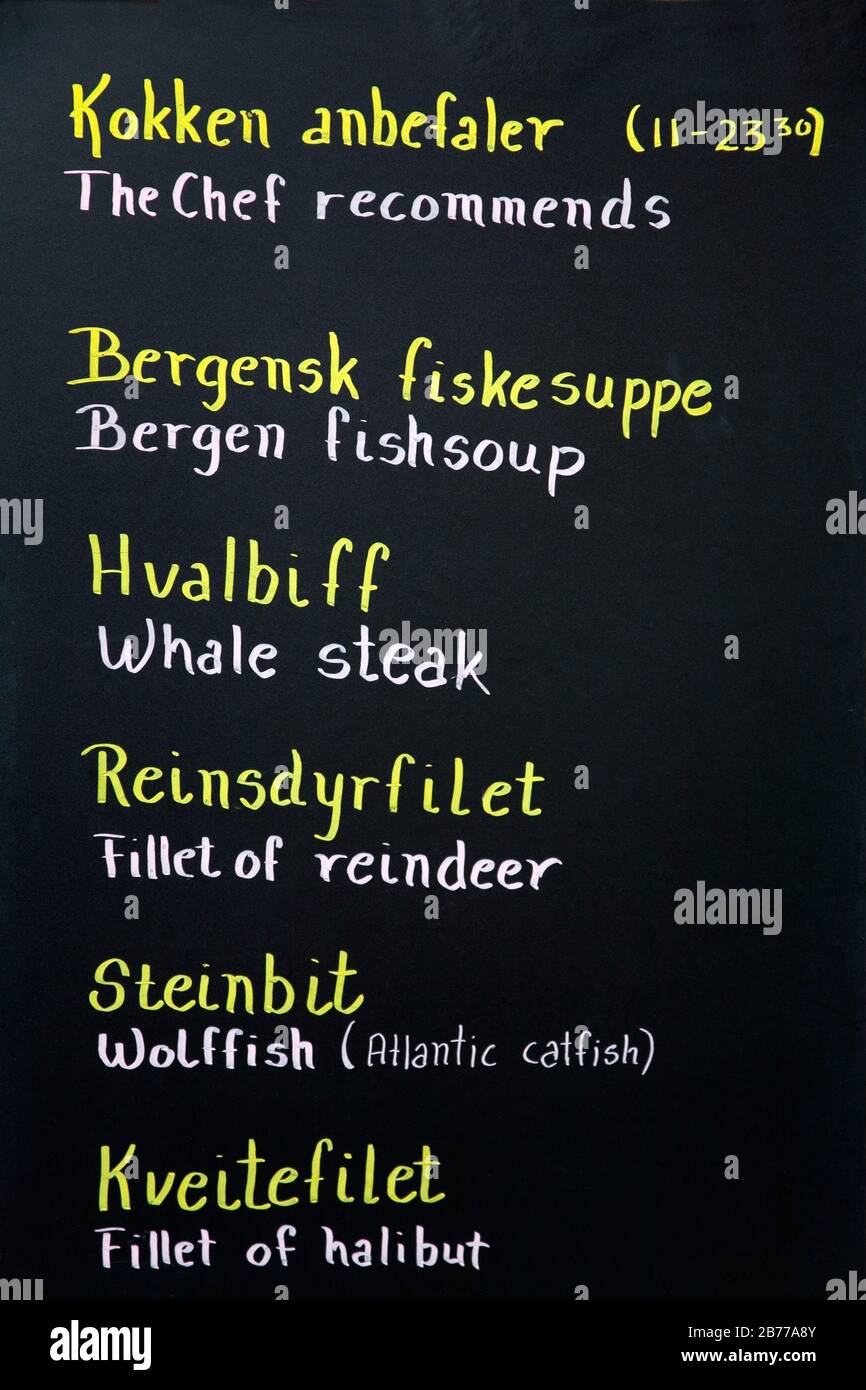 Kokken anbefaler (11-23³⁰)
The Chef recommends
Bergensk fiskesuppe
Bergen fishsoup
Hvalbiff
Whale steak
Reinsdyrfilet
Fillet of reindeer
Steinbit
Wolffish (Atlantic catfish)
Kveitefilet
Fillet of halibut
alamy
Image ID: 2B77A8Y
www.alamy.com